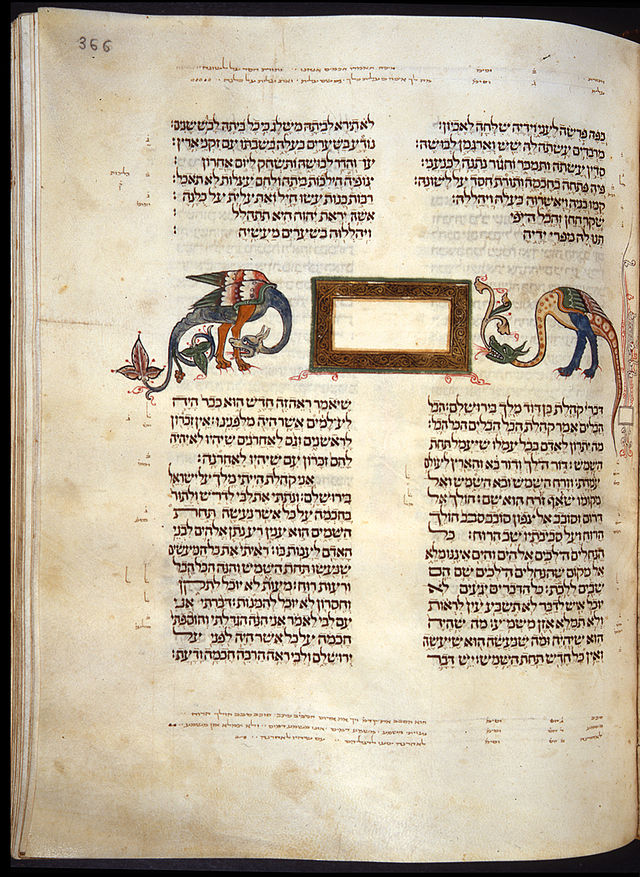 366
כפה פרשה לעני וידיה שלחה לאביון:
לא תירא לביתה משלג כי כל ביתה לבש שנים:
מרבדים עשתה לה שש וארגמן לבושה:
נודע בשערים בעלה בשבתו עם זקני ארץ:
סדין עשתה ותמכר וחגור נתנה לכנעני:
עז והדר לבושה ותשחק ליום אחרון
פיה פתחה בחכמה ותורת חסד על לשונה:
צופיה הליכות ביתה ולחם עצלות לא תאכל:
קמו בניה ויאשרוה בעלה ויהללה:
רבות בנות עשו חיל ואת עלית על כלנה:
שקר החן והבל היפי
אשה יראת יהוה היא תתהלל
תנו לה מפרי ידיה
ויהללוה בשערים מעשיה:
דברי קהלת בן דוד מלך בירושלם: הבל
הבלים אמר קהלת הבל הבלים הכל הבל:
מה יתרון לאדם בכל עמלו שיעמל תחת
השמש: דור הלך ודור בא והארץ לעולם
עמדת: וזרח השמש ובא השמש ואל
מקומו שואף זורח הוא שם: הולך אל
דרום וסובב אל צפון סובב סבב הולך
הרוח ועל סביבתיו שב הרוח: כל
הנחלים הלכים אל הים והים איננו מלא
אל מקום שהנחלים הלכים שם הם
שבים ללכת: כל הדברים יגעים לא
יוכל איש לדבר לא תשבע עין לראות
ולא תמלא אזן משמע: מה שהיה
הוא שיהיה ומה שנעשה הוא שיעשה
ואין כל חדש תחת השמש: יש דבר
שיאמר ראה זה חדש הוא כבר היה
לעלמים אשר היה מלפנינו: אין זכרון
לראשנים וגם לאחרנים שיהיו לא יהיה
להם זכרון עם שיהיו לאחרנה:
אני קהלת הייתי מלך על ישראל
בירושלם: ונתתי את לבי לדרוש ולתור
בחכמה על כל אשר נעשה תחת
השמים הוא ענין רע נתן אלהים לבני
האדם לענות בו: ראיתי את כל המעשים
שנעשו תחת השמש והנה הכל הבל
ורעות רוח: מעות לא יוכל לתקן
וחסרון לא יוכל להמנות: דברתי אני
עם לבי לאמר אני הנה הגדלתי והוספתי
חכמה על כל אשר היה לפני על
ירושלם ולבי ראה הרבה חכמה ודעת: